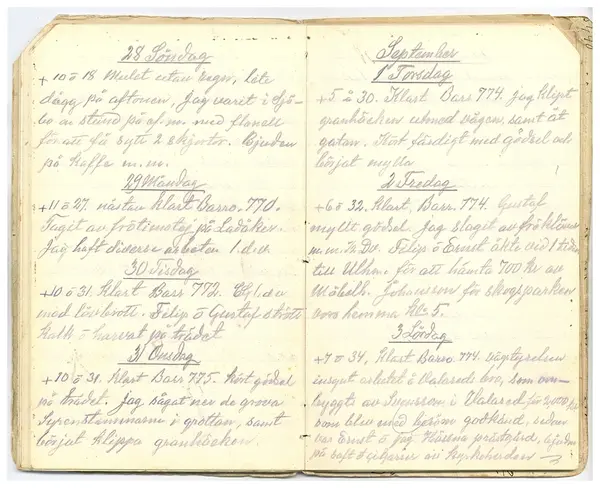 28 Söndag
+10 ö 18. Mulet utan regn, lite
dagg på aftonen. Jag varit i Sjö-
bo en stund på e.m. med flanell
för att få sytt 2 skjortor. Bjuden
på kaffe m.m.
29 Måndag
+11 ö 27. nästan klart Barro. 770.
Tagit av frötimotej på Ladåker.
Jag haft diverse arbeten
30 Tisdag
+10 ö 31. Klart Barr 772.
med lövbrott. Felip ö Gustaf strött
kalk ö harvat på trädet
31 Onsdag
+10 ö 31. Klart Barr 775. Kört gödsel
på trädet. Jag sågat ner de grova
Syrenstammarna i grottan, samt
börjat klippa granhäcken.
September
1 Torsdag
+5 ö 30. Klart Barr 774. Jag klipt
granhäcken utmed vägen samt åt
gatan. Kört färdigt med gödsel och
börjat mylla
2 Fredag
+6 ö 32. Klart, Barr. 774. Gustaf
myllt gödsel. Jag slagit av fröklövern
m.m. Felip ö Ernst åkte vid 1 tiden
till Ulhn. för att hämta 700 kr av
Möbelh. Johansson för skogsparken
voro hemma kl. 5.
3 Lördag
+7 ö 34, Klart Barro. 774. vägstyrelsen
insynt arbetet å Valareds bro, som om-
byggts av Svensson i Valared för 2,000 kr
som blev med beröm godkänd, sedan
var Ernst ö jag Hössna prästgård, bjuden
på saft ö cigarrer av kyrkoherden